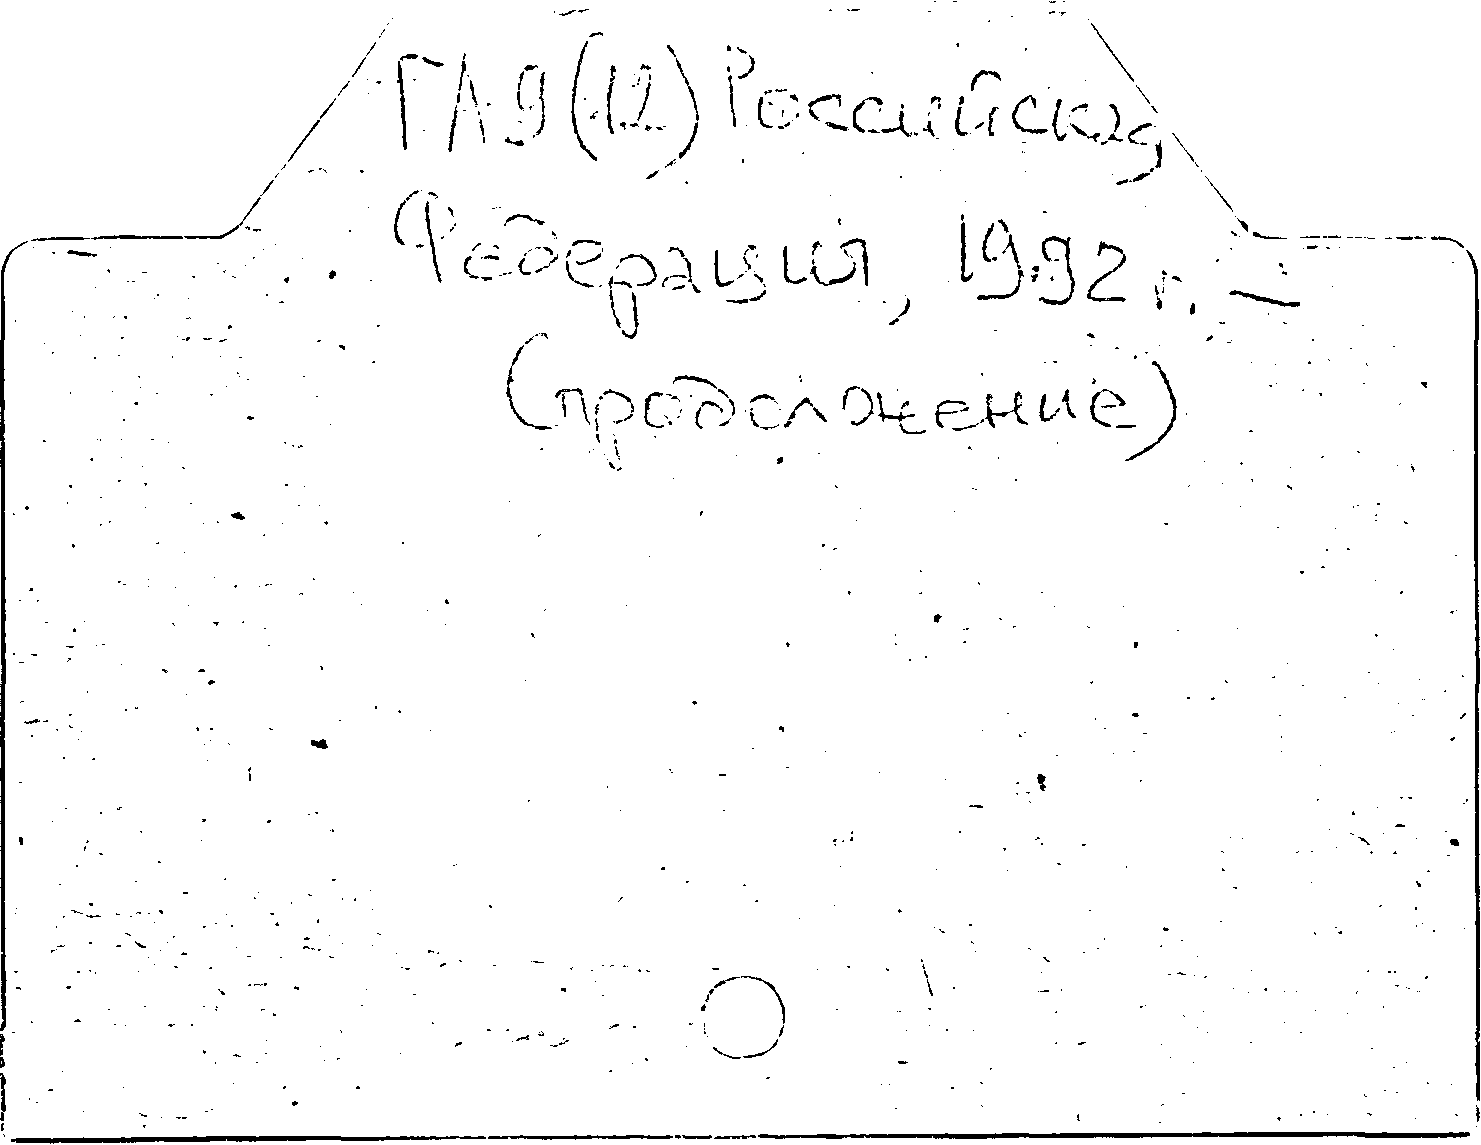 ГА9(12) Российская
Федерация, 1992 г. —
(продолжение)